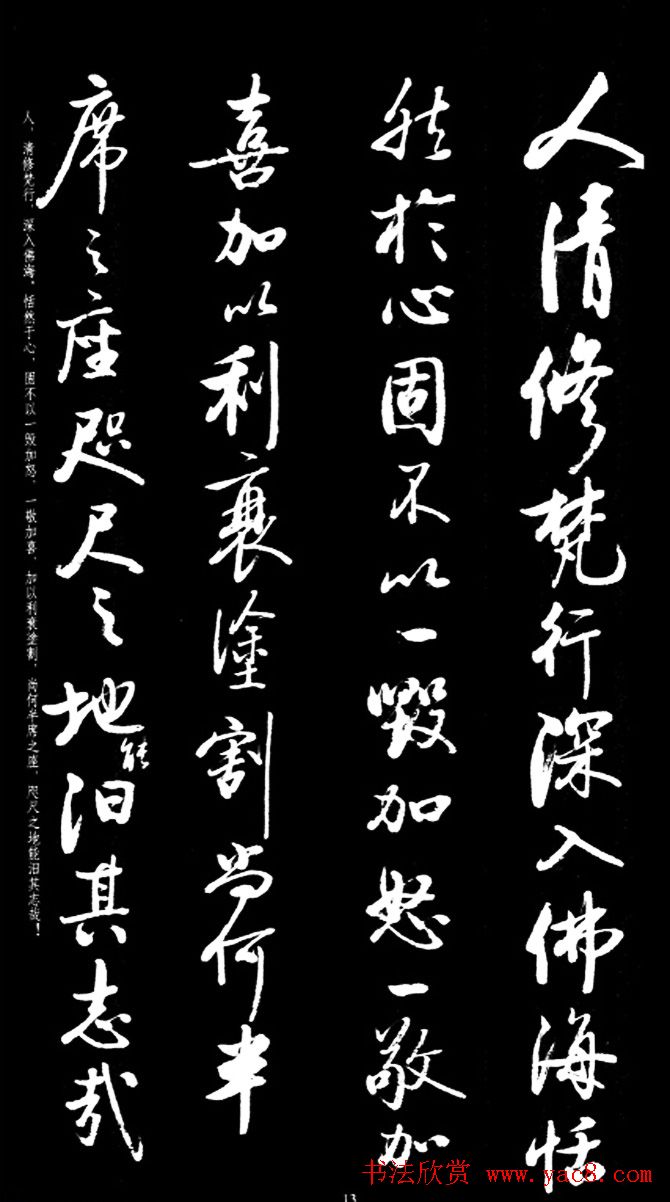 人清修梵行深入佛海恬
然於心固不以一毀加怒一敬加
喜加以利衰塗割尚何半
席之座咫尺之地能汩其志哉
人，清修梵行，深入佛海，恬然于心，固不以一毁加怒，一敬加喜，加以利衰塗割，尚何半席之座，咫尺之地能汩其志哉！
书法欣赏 www.yac8.com
13